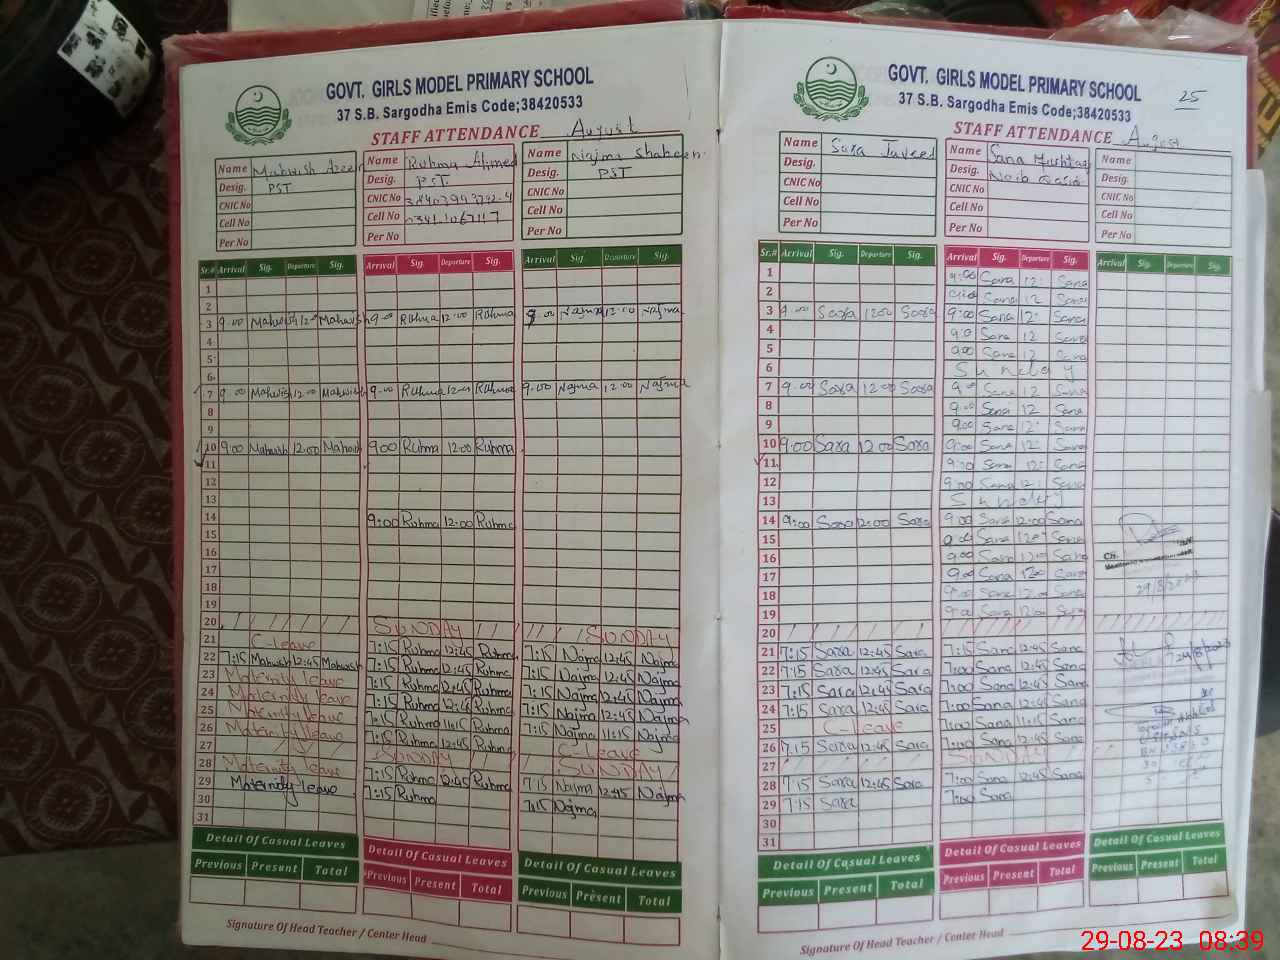 GOVT. GIRLS MODEL PRIMARY SCHOOL
37 S.B. Sargodha Emis Code;38420533
STAFF ATTENDANCE August
Name Mahwish
Desig. PST
CNIC No
Cell No
Per No
Name Ruhma Ahmed
Desig. PST
CNIC No
Cell No
Per No
Name Najma Shaheen
Desig. PST
CNIC No
Cell No
Per No
Sr.# Arrival Sig. Departure Sig. Arrival Sig. Departure Sig. Arrival Sig. Departure Sig.
1
2
3 9:00 Mahwish 12:00 Mahwish 9:00 Ruhma 12:00 Ruhma 9:00 Najma 12:00 Najma
4
5
6
7 9:00 Mahwish 12:00 Mahwish 9:00 Ruhma 12:00 Ruhma 9:00 Najma 12:00 Najma
8
9
10 9:00 Mahwish 12:00 Mahwish 9:00 Ruhma 12:00 Ruhma
11
12
13
14 9:00 Ruhma 12:00 Ruhma
15
16
17
18
19
20 SUNDAY SUNDAY
21 C-leave 7:15 Ruhma 12:45 Ruhma 7:15 Najma 12:45 Najma
22 7:15 Mahwish 12:45 Mahwish 7:15 Ruhma 12:45 Ruhma 7:15 Najma 12:45 Najma
23 Maternity leave 7:15 Ruhma 12:45 Ruhma 7:15 Najma 12:45 Najma
24 Maternity leave 7:15 Ruhma 12:45 Ruhma 7:15 Najma 12:45 Najma
25 Maternity leave 7:15 Ruhma 11:15 Ruhma 7:15 Najma 11:15 Najma
26 Maternity leave 7:15 Ruhma 12:45 Ruhma C-leave
27 SUNDAY SUNDAY
28 Maternity leave 7:15 Ruhma 12:45 Ruhma 7:15 Najma 12:45 Najma
29 Maternity leave 7:15 Ruhma 7:15 Najma
30
31
Detail Of Casual Leaves Detail Of Casual Leaves Detail Of Casual Leaves
Previous Present Total Previous Present Total Previous Present Total
Signature Of Head Teacher / Center Head
GOVT. GIRLS MODEL PRIMARY SCHOOL
25
37 S.B. Sargodha Emis Code;38420533
STAFF ATTENDANCE August
Name Sara Javeed
Desig.
CNIC No
Cell No
Per No
Name Sana Mushtaq
Desig. Naib Qasid
CNIC No
Cell No
Per No
Name
Desig.
CNIC No
Cell No
Per No
Sr.# Arrival Sig. Departure Sig. Arrival Sig. Departure Sig. Arrival Sig. Departure Sig.
1 9:00 Sana 12: Sana
2 9:00 Sana 12 Sana
3 9:00 Sara 12:00 Sara 9:00 Sana 12: Sana
4 9:0 Sana 12 Sana
5 9:00 Sana 12 Sana
6 Sunday
7 9:00 Sara 12:00 Sara 9:0 Sana 12 Sana
8 9:00 Sana 12 Sana
9 9:00 Sana 12: Sana
10 9:00 Sara 12:00 Sara 9:00 Sana 12: Sana
11 9:00 Sana 12: Sana
12 9:00 Sana 12: Sana
13 Sunday
14 9:00 Sara 12:00 Sara 9:00 Sana 12:00 Sana
15 9:00 Sana 12:0 Sana
16 9:00 Sana 12:00 Sana
17 9:00 Sana 12:00 Sana
18 9:00 Sana 12:00 Sana
19 9:00 Sana 12:00 Sana
20
21 7:15 Sara 12:45 Sara 7:15 Sana 12:45 Sana
22 7:15 Sara 12:45 Sara 7:00 Sana 12:45 Sana
23 7:15 Sara 12:45 Sara 7:00 Sana 12:45 Sana
24 7:15 Sara 12:45 Sara 7:00 Sana 12:45 Sana
25 C-leave 7:00 Sana 11:15 Sana
26 7:15 Sara 12:45 Sara 7:00 Sana 12:45 Sana
27 SUNDAY
28 7:15 Sara 12:45 Sara 7:00 Sana 12:45 Sana
29 7:15 Sara 7:00 Sana
30
31
Detail Of Casual Leaves Detail Of Casual Leaves Detail Of Casual Leaves
Previous Present Total Previous Present Total Previous Present Total
Signature Of Head Teacher / Center Head
29-08-23 08:39